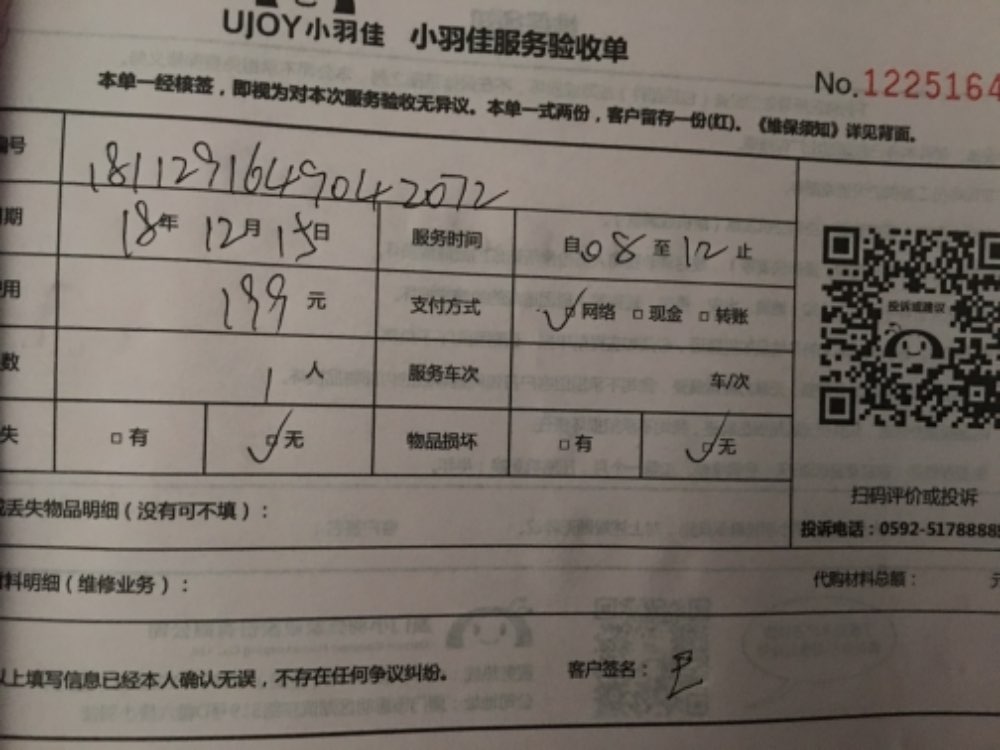 UJOY小羽佳 小羽佳服务验收单
No.1225164
本单一经核签，即视为对本次服务验收无异议。本单一式两份，客户留存一份(红)。《维保须知》详见背面。
编号 1811291649042072
日期 18年 12月 15日 服务时间 自08至12止
费用 199元 支付方式 ☑网络 □现金 □转账
数 1人 服务车次 车/次
失 □有 ☑无 物品损坏 □有 ☑无
投诉或建议
扫码评价或投诉
投诉电话：0592-5178888
丢失物品明细（没有可不填）：
材料明细（维修业务）： 代购材料总额： 元
以上填写信息已经本人确认无误，不存在任何争议纠纷。 客户签名：